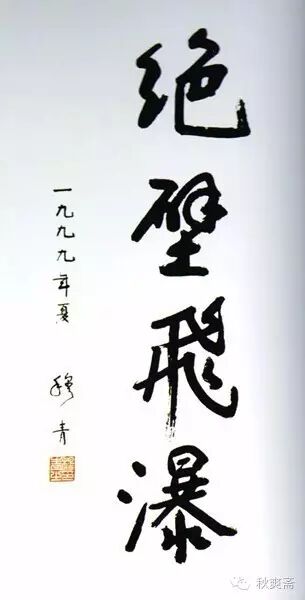 绝壁飛瀑
一九九九年夏 穆青
秋爽斋